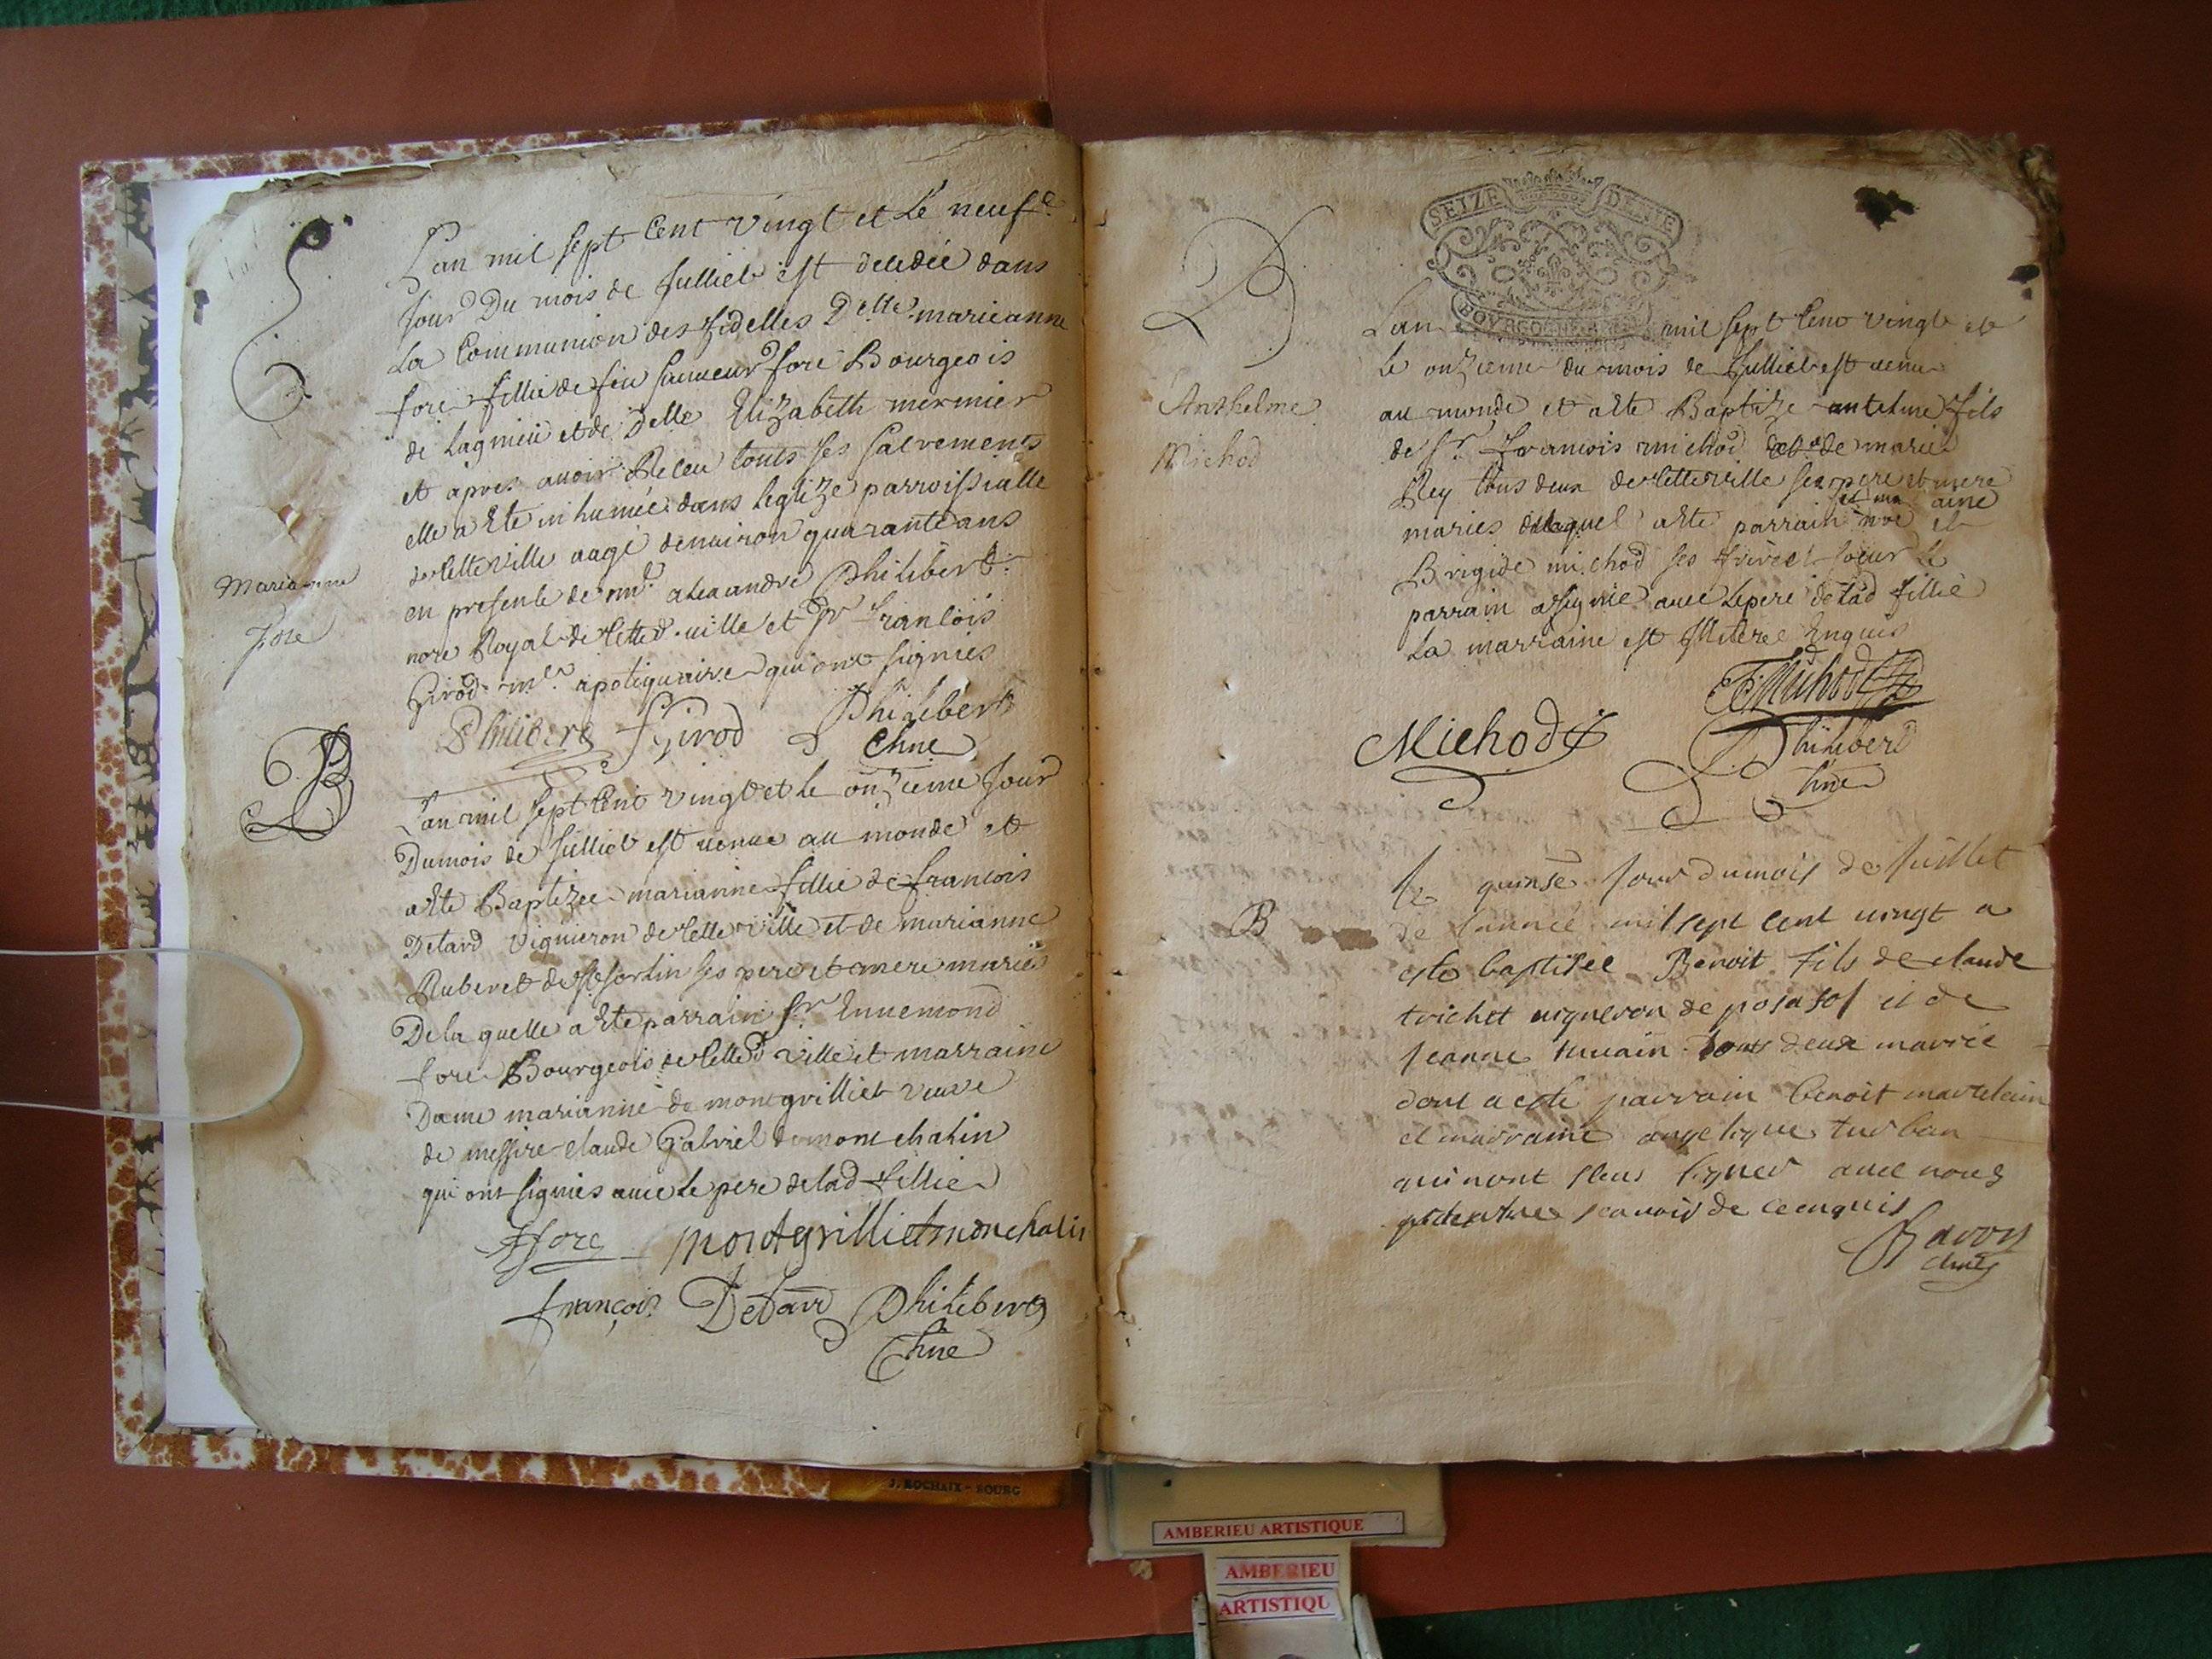 S
Lan mil sept Cent vingt et Le neufe
Jour Du mois de Julliet est decedée dans
La Communion des fidelles Delle marieanne
fore fillie de feu fore Bourgeois
de Lagnieu et de Delle Elizabeth mermier
et apres avoir Receu touts ses Sacrements
elle a Ete inhumée dans Leglize parroissialle
de Cette ville aagé denuiron quarante ans
Marianne
fore
en presence de mr. alexandre Philibert
nore Royal de Cette d. ville et Sr francois
Girod mre. apotiquaire qui ont signies
Philibert fGirod Philibert
Chne
B
Lan mil sept Cent vingt et le onzieme Jour
Dumois de Julliet est venue au monde et
a Ete Baptizee marianne fillie de francois
Detard vigneron de Cette ville et de marianne
Ruberet de st sorlin ses pere et mere mariés
De la quelle a Ete parrain Sr Ennemond
fore Bourgeois de Cette d ville et marraine
Dame marianne de montgrilliet veuve
de messire Claude Gabriel de montchalin
qui ont signies avec le pere de lad fillie
fore montgrilliet monchalin
françois Detard Philibert
Chne
SEIZE DENIE
BOVRGOGNE
B
Lan mil sept Cent vingt et
le onzieme du mois de Julliet est venu
Anthelme
Michod
au monde et a Ete Baptize antelme fils
de Sr. francois michod et de marie
Rey tous deux de Cette ville ses pere et mere
maries duquel a Ete parrain aine et
Brigide michod ses frere et soeur Le
parrain a signié avec Le pere de Lad fillie
La marraine est Enquis
Michod
Michod
Philibert
Chne
Le quinsé Jour du mois de Juillet
B
de l'année mil sept cent vingt a
esté baptisée Benoit fils de claude
trichet vigneron de posafol et de
Jeanne tous deux mariée
dont a esté parrain benoit martelain
et marraine angelique turban
qui nont sceu signer avec nous
scavoir de ce enquis
Savoy
chne
J. ROCHAIX - BOURG
AMBERIEU ARTISTIQUE
AMBERIEU
ARTISTIQU